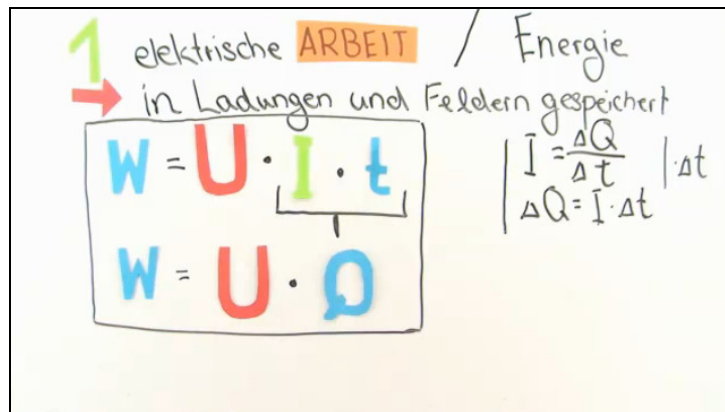 1 elektrische ARBEIT / Energie
→ in Ladungen und Feldern gespeichert
W = U · I · t
W = U · Q
I = ΔQ/Δt |·Δt
ΔQ = I·Δt